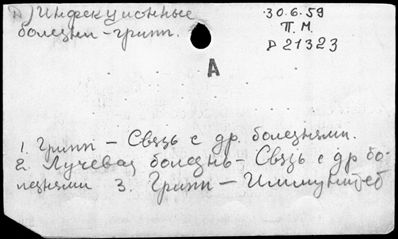 А) Инфекционные
болезни-грипп.
30.6.59
П.М.
D 21323
А
1. Грипп – Связь с др. болезнями.
2. Лучевая болезнь – Связь с др бо-
лезнями 3. Грипп – Иммунитет